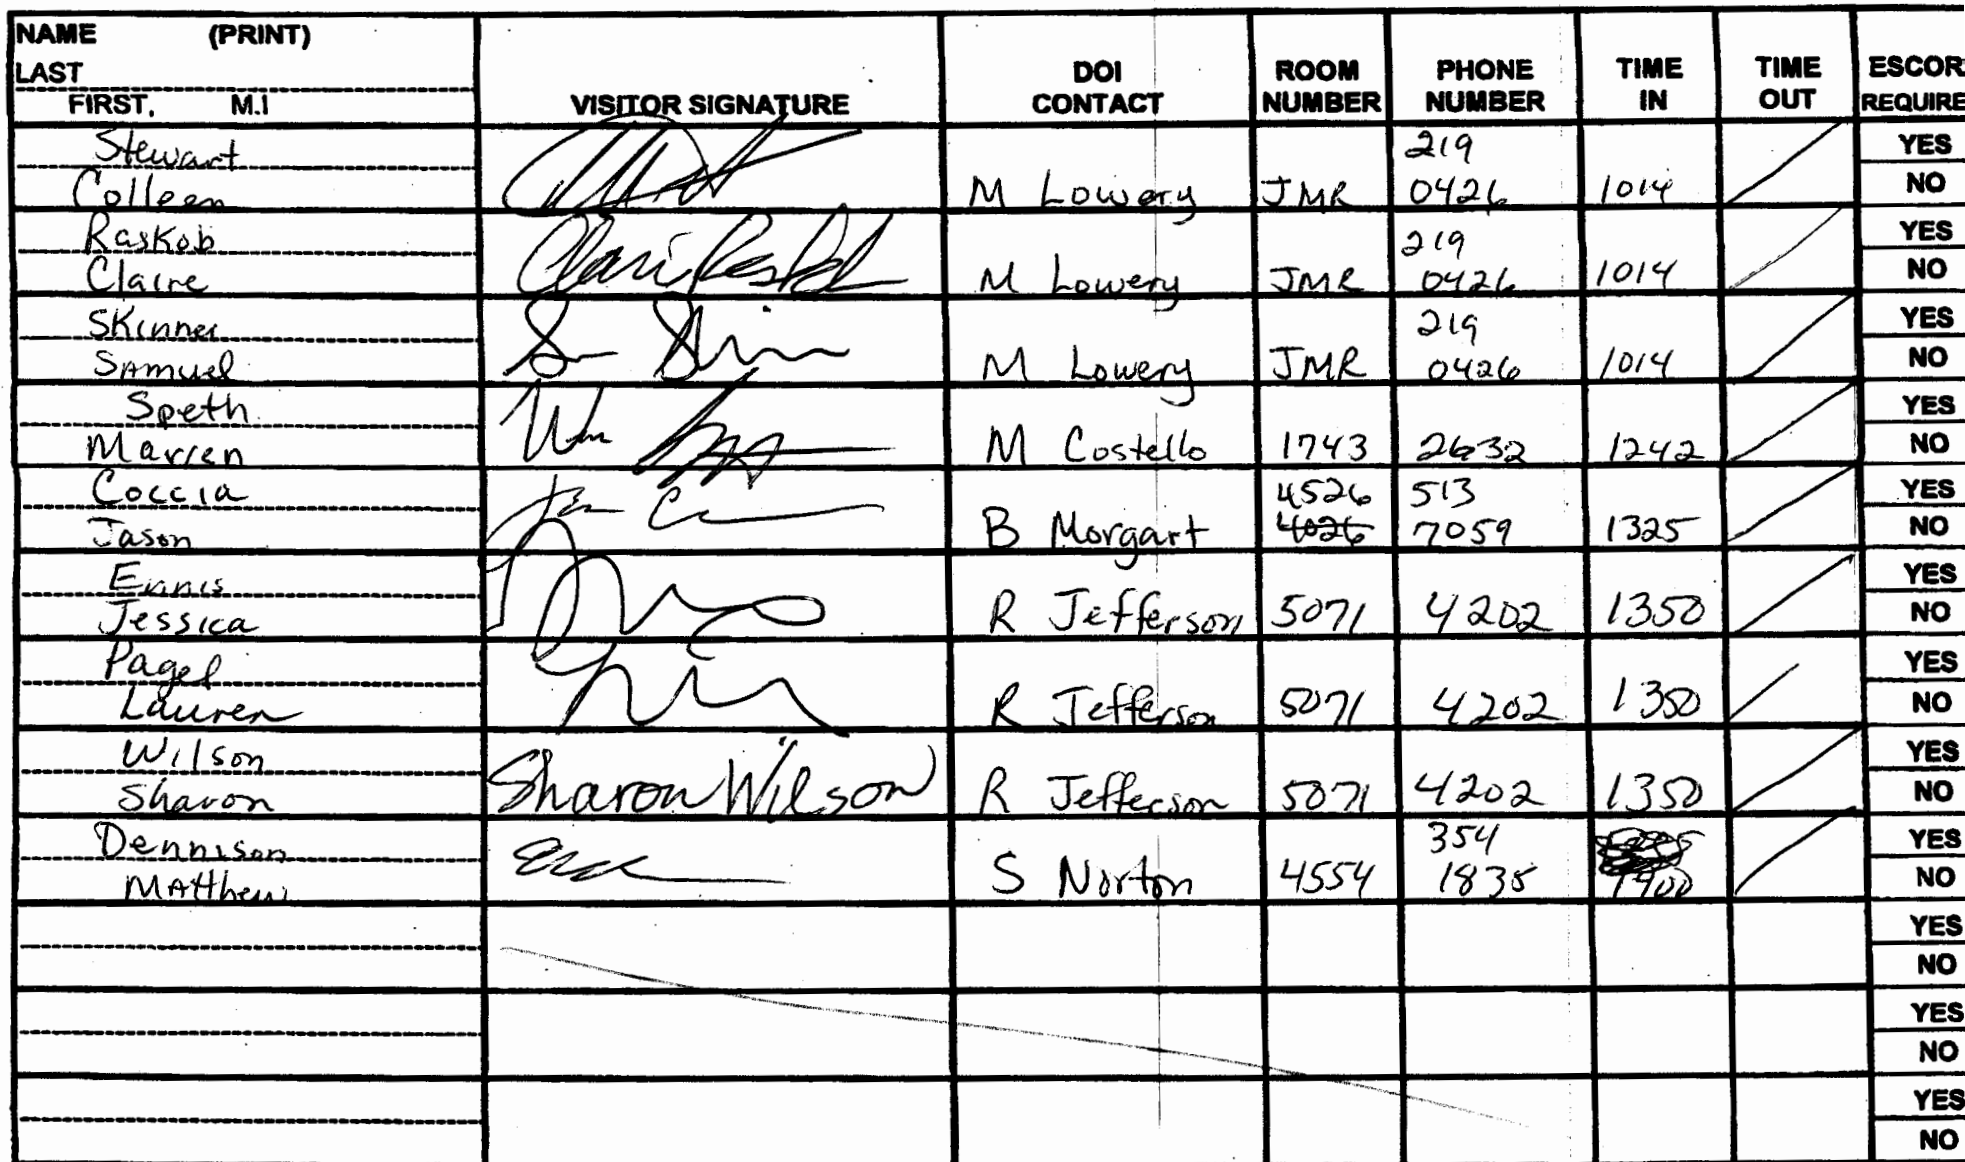 NAME (PRINT)
LAST
FIRST, M.I
VISITOR SIGNATURE
DOI
CONTACT
ROOM
NUMBER
PHONE
NUMBER
TIME
IN
TIME
OUT
ESCOR
REQUIRE
Stewart
Colleen
M Lowery JMR 219
0426 1014 YES
NO
Raskob
Claire
M Lowery JMR 219
0426 1014 YES
NO
Skinner
Samuel
M Lowery JMR 219
0426 1014 YES
NO
Speth
Marren
M Costello 1743 2632 1242 YES
NO
Coccia
Jason
B Morgart 4526
4026 513
7059 1325 YES
NO
Ennis
Jessica
R Jefferson 5071 4202 1350 YES
NO
Pagel
Lauren
R Jefferson 5071 4202 1350 YES
NO
Wilson
Sharon
Sharon Wilson R Jefferson 5071 4202 1350 YES
NO
Dennison
Matthew
S Norton 4554 354
1835 1400 YES
NO
YES
NO
YES
NO
YES
NO